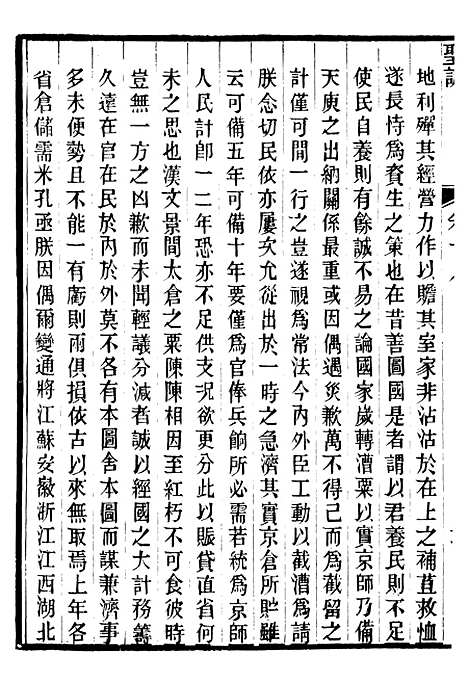 聖訓
卷十八
地利殫其經營力作以贍其室家非沾沾於在上之補苴救恤
遂長恃為資生之策也在昔善圖國是者謂以君養民則不足
使民自養則有餘誠不易之論國家歲轉漕粟以實京師乃備
天庾之出納關係最重或因偶遇災歉萬不得已而為截留之
計僅可間一行之豈遂視為常法今內外臣工動以截漕為請
朕念切民依亦屢次允從出於一時之急濟其實京倉所貯雖
云可備五年可備十年要僅為官俸兵餉所必需若統為京師
人民計卽一二年恐亦不足供支况欲以此賑貸直省何
未之思也漢文景間太倉之粟陳陳相因至紅朽不可食彼時
豈無一方之凶歉而未聞輕議分減者誠以經國之大計務籌
久遠在官在民於外莫不各有本圖舍本圖而謀兼濟事
多未便勢且不能一有虧則兩俱損依古以來無取焉上年各
省倉儲需米孔亟朕因偶爾變通將江蘇安徽浙江江西湖北